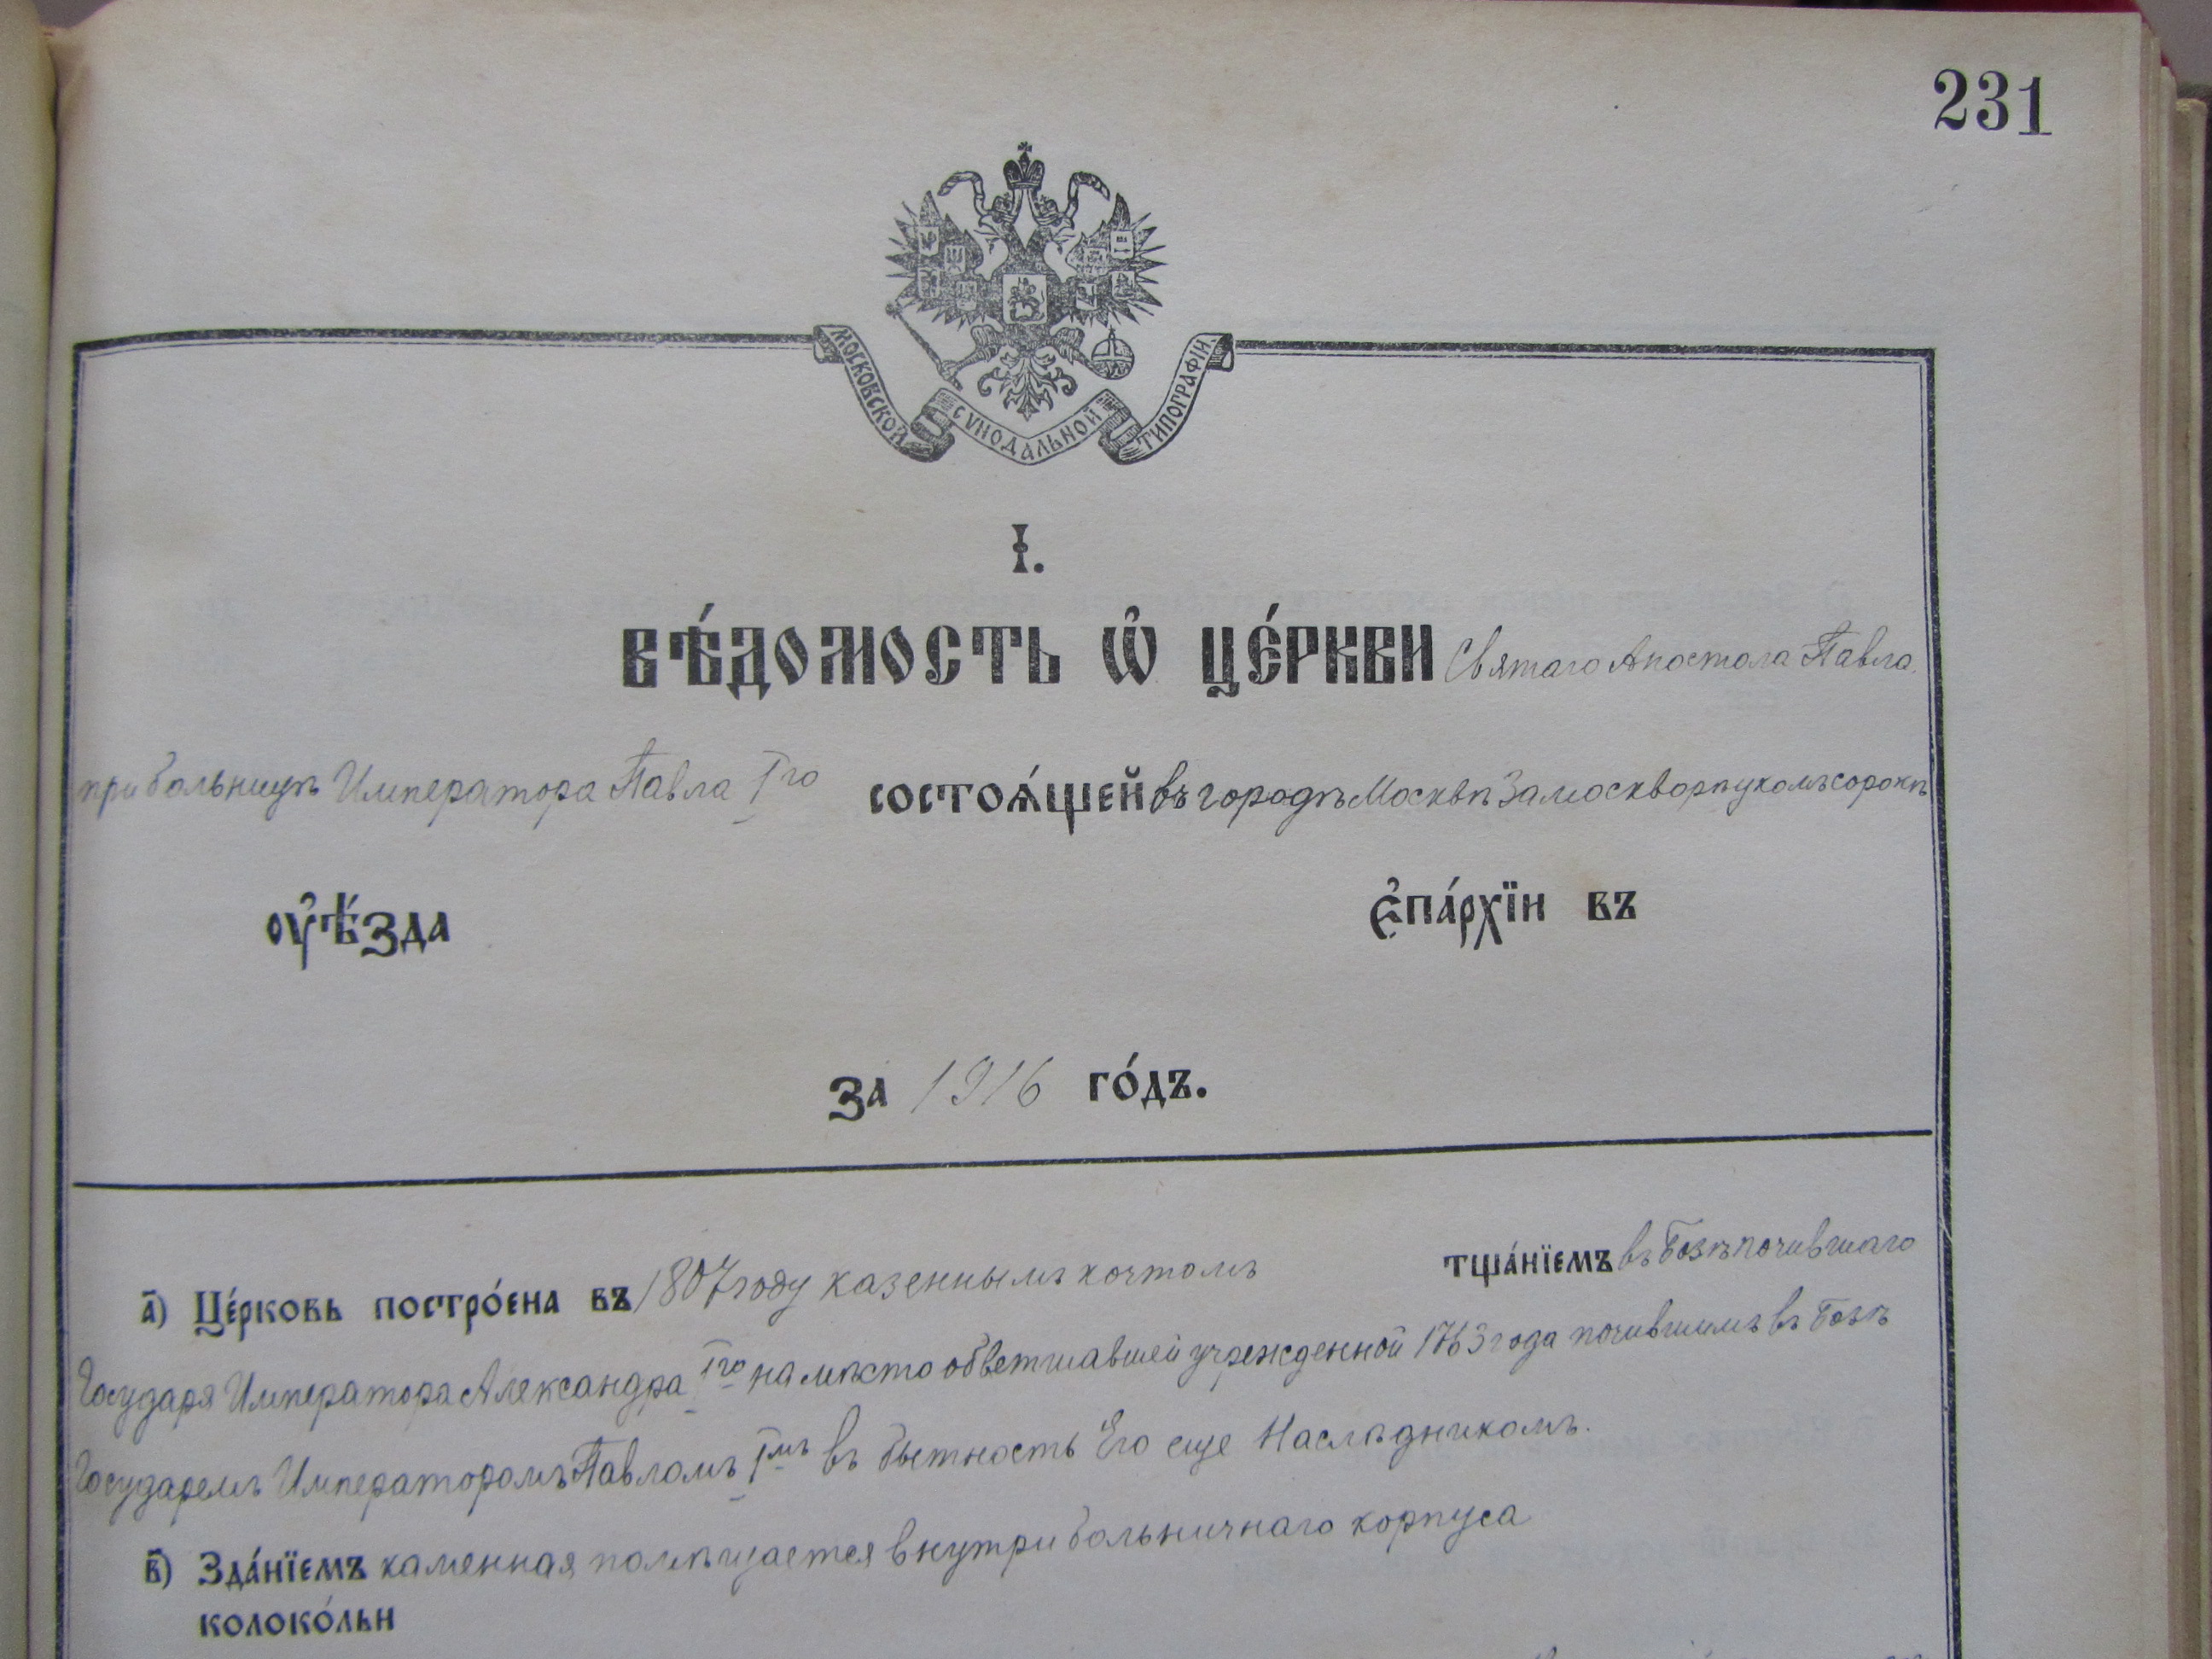 231
МОСКОВСКОЙ СѴНОДАЛЬНОЙ ТИПОГРАФІИ
І.
ВѢ́ДОМОСТЬ Ѽ ЦЕ́РКВИ Святаго Апостола Павла.
при больницѣ Императора Павла Iго состоѧ́щей въ городѣ Москвѣ Замоскворѣцкомъ сорокѣ
ᲂу҆ѣ́зда є҆па́рхїи въ
За 1916 го́дъ.
а҃) Це́рковь постро́ена въ 1807 году казеннымъ коштомъ тща́нїемъ въ Бозѣ почившаго
Государя Императора Александра Iго на мѣсто обветшавшей учрежденной 1763 года почившимъ въ Бозѣ
Государемъ Императоромъ Павломъ Iмъ въ бытность Его еще Наслѣдникомъ.
в҃) Зда́нїемъ каменная помѣщается внутри больничнаго корпуса
колоко́льн